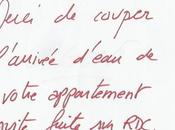 Merci de couper
l'arrivée d'eau de
votre appartement
suite fuite sur RDC.